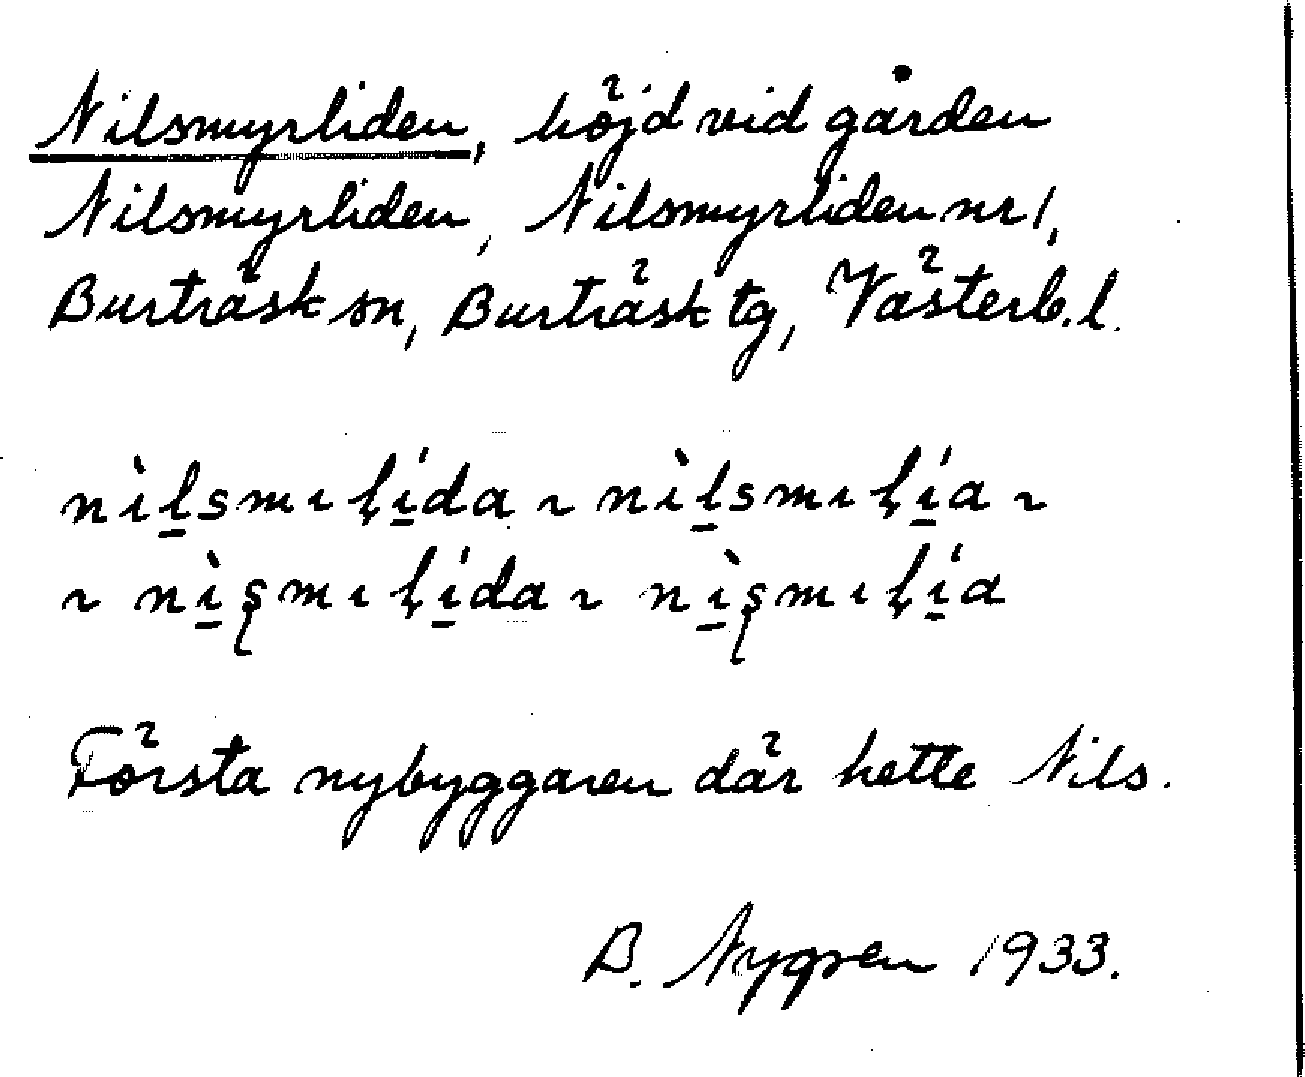 Nilsmyrliden, höjd vid gården
Nilsmyrliden, Nilsmyrliden nr 1,
Burträsk sn, Burträsk tg, Västerb. l.
nìl̠smıḷí̠da ~ nìl̠smıḷí̠a ~
~ nì̠ʂmıḷí̠da ~ nì̠ʂmıḷí̠a
Första nybyggaren där hette Nils.
B. Nygren 1933.